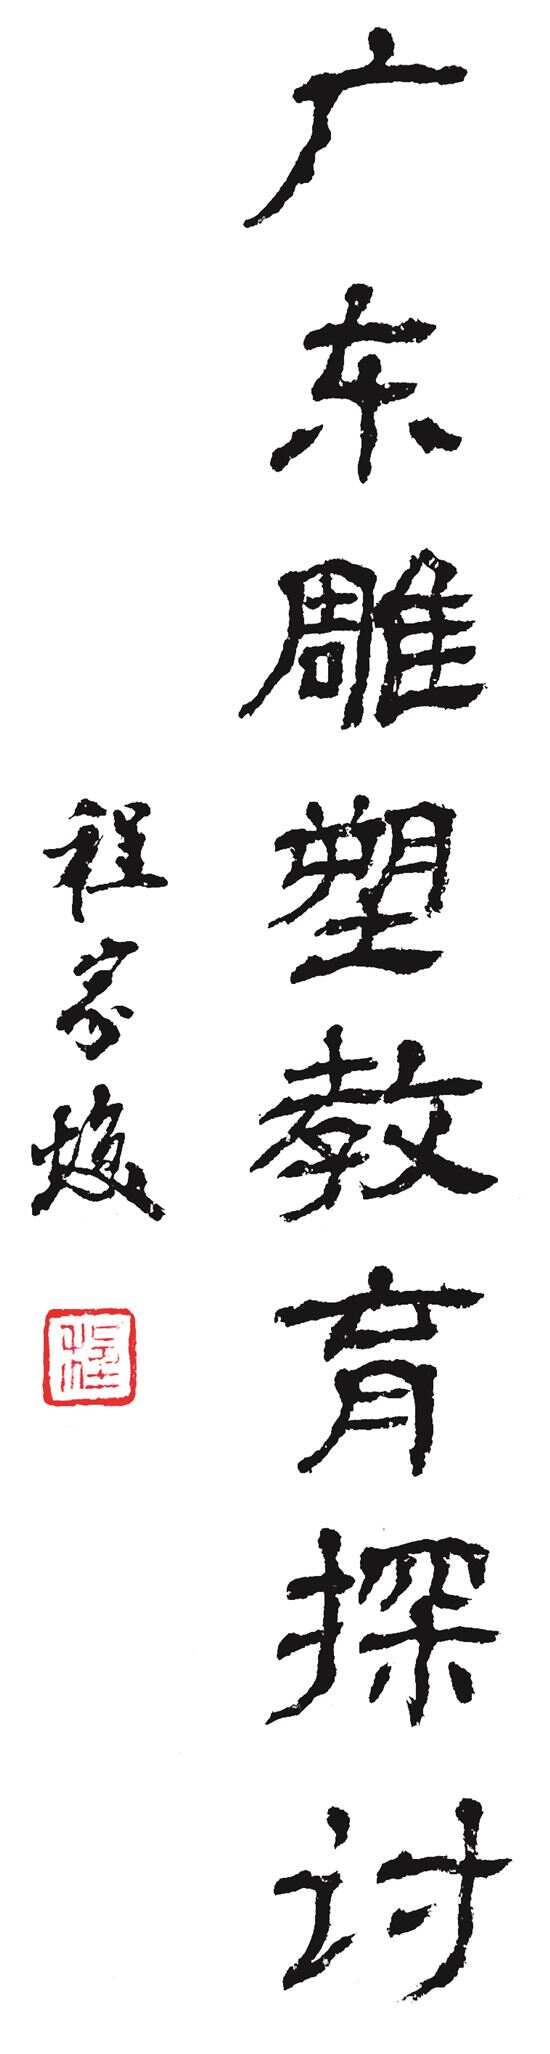 广东雕塑教育探讨
程家焕
程